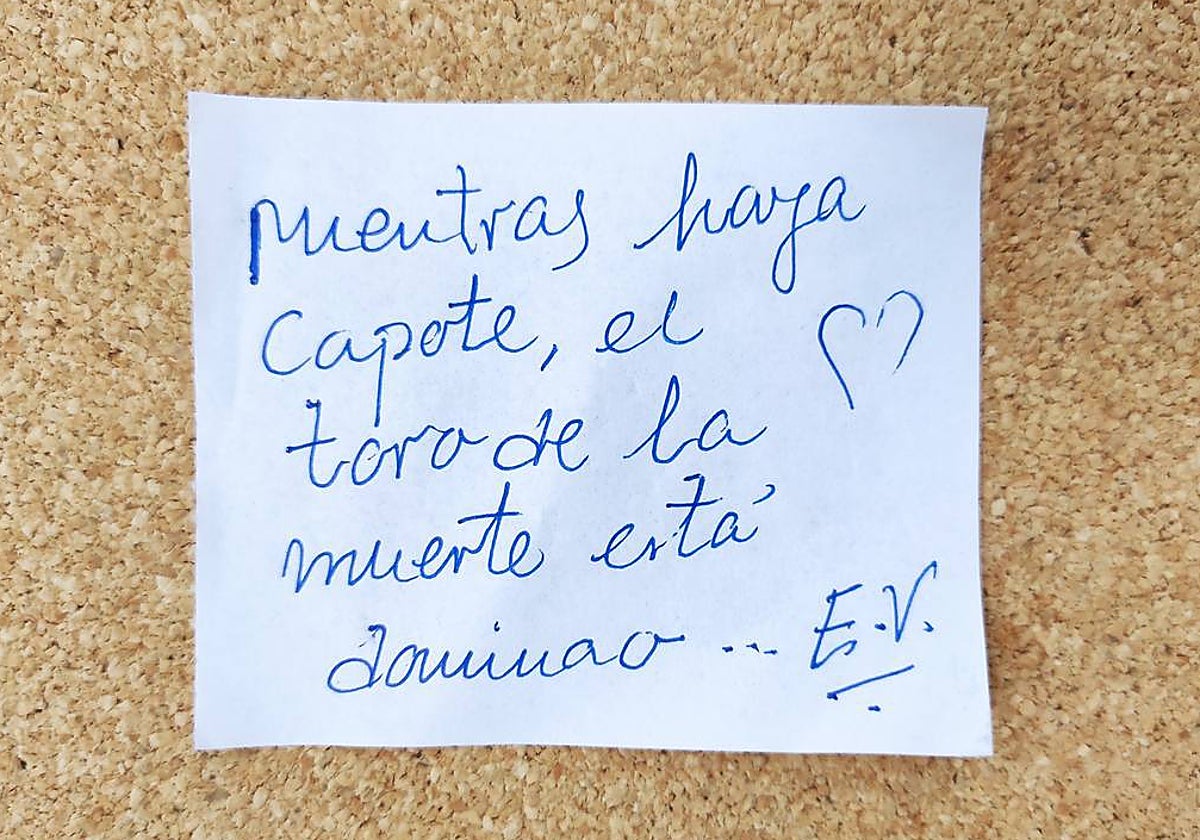 Mientras haya
Capote, el
toro de la
muerte está
dominao ... E.V.